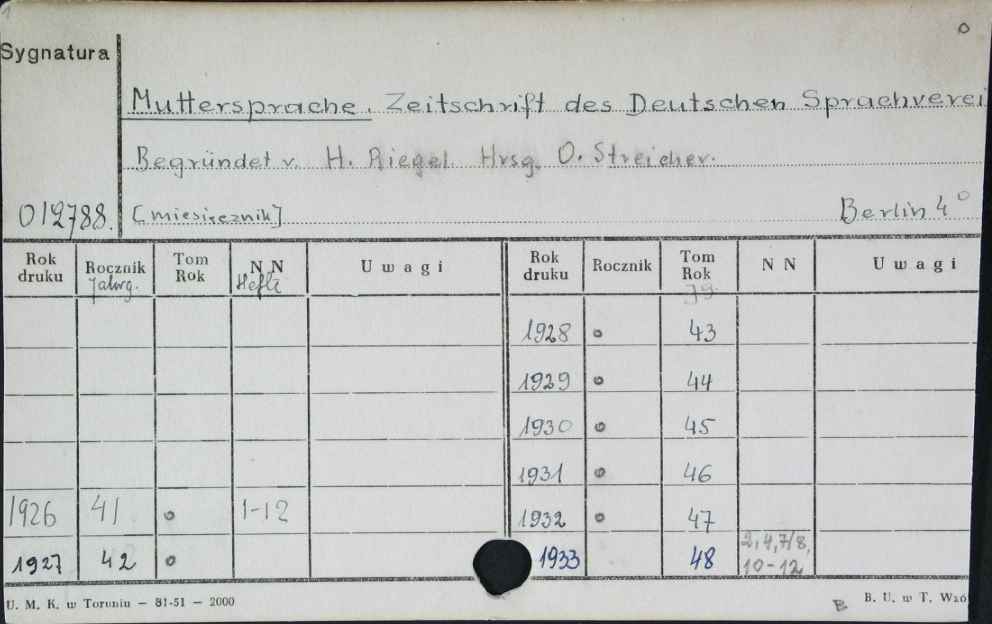 o
Sygnatura
Muttersprache. Zeitschrift des Deutschen Sprachverei
Begründet v. H. Riegel. Hrsg. O. Streicher.
012788. [miesięcznik] Berlin 4°
Rok druku Rocznik Jahrg. Tom Rok NN Hefte Uwagi Rok druku Rocznik Tom Rok Jg. NN Uwagi
1928 o 43
1929 o 44
1930 o 45
1931 o 46
1926 41 o 1-12 1932 o 47
1927 42 o 1933 48 2,4,7/8, 10-12
U. M. K. w Toruniu — 81-51 — 2000 B B. U. w T. Wzó